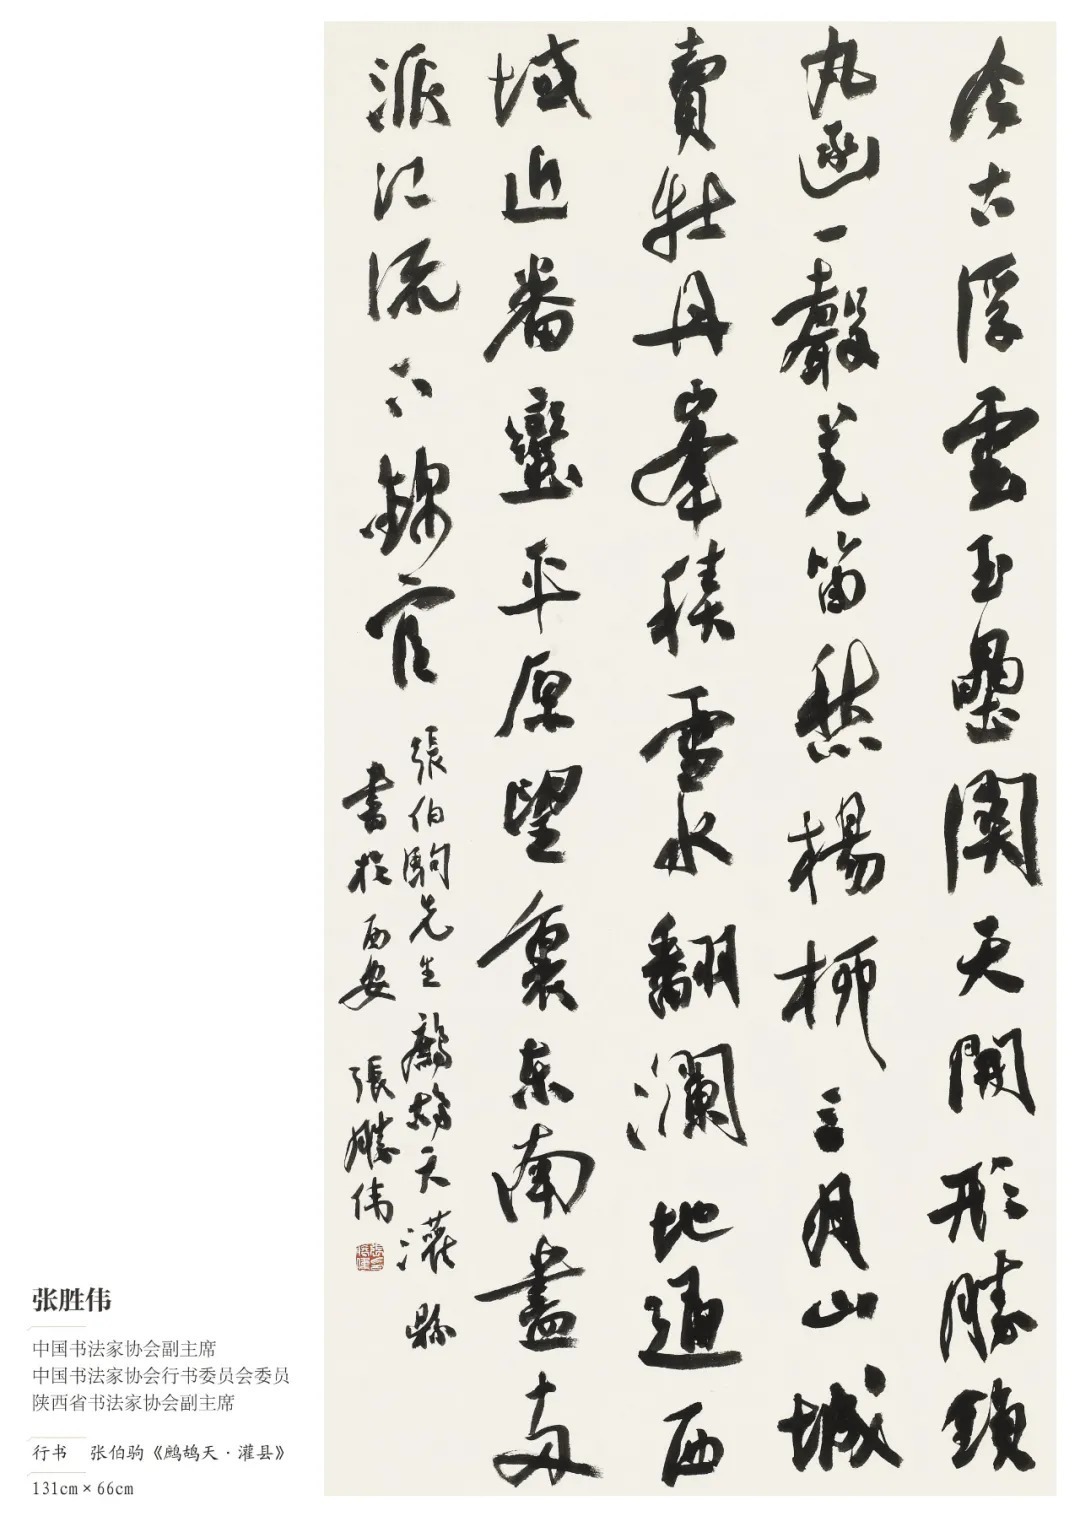 今古浮雲玉壘關天開形勝鎖
丸函一聲羌笛愁楊柳三月山城
賣牡丹峯積雪水翻瀾地通西
域近番蠻平原望裏东南盡兩
派江流下錦官
張伯駒先生鷓鴣天灌縣
書於西安 張勝伟
张胜伟
中国书法家协会副主席
中国书法家协会行书委员会委员
陕西省书法家协会副主席
行书 张伯驹《鹧鸪天·灌县》
131cm×66cm